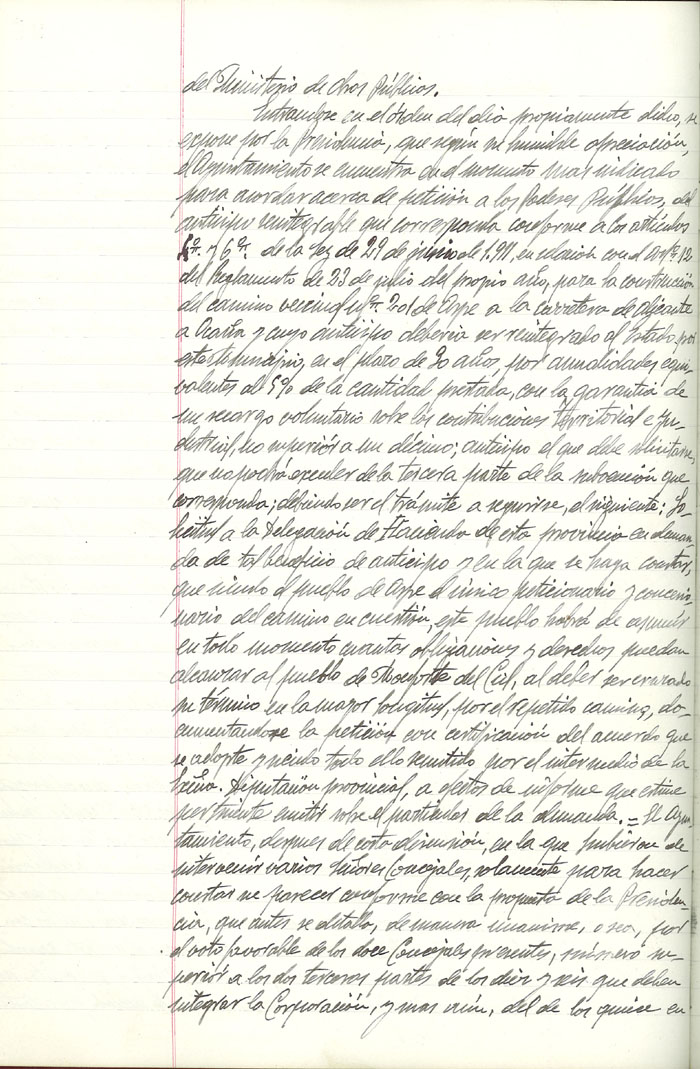 del Ministerio de Obras Públicos.
Entrandose en el órden del dia propiamente dicho, se
expone por la Presidencia, que según su humilde apreciación,
el Ayuntamiento se encuentra en el momento mas indicado
para acordar acerca de petición a los Poderes Públicos, del
anticipo reintegrable que corresponda conforme a los artículos
5º. y 6º. de la Ley de 29 de junio de 1.911, en relación con el artº. 12
del Reglamento de 23 de julio del propio año, para la construcción
del camino vecinal nº. 201 de Aspe a la carretera de Alicante
a Ocaña y cuyo anticipo, deberia ser reintegrado al Estado por
este Municipio, en el plazo de 20 años, por anualidades equi-
valentes al 5% de la cantidad prestada, con la garantía de
un recargo voluntario sobre las contribuciones Territorial e In-
dustrial, no superiór a un décimo; anticipo el que debe solicitarse,
que no podrá exceder de la tercera parte de la subvención que
corresponda; debiendo ser el trámite a seguirse, el siguiente: So-
licitud a la Delegación de Hacienda de esta provincia en deman-
da de tal beneficio de anticipo y en la que se haga constar,
que siendo el pueblo de Aspe el único peticionario y concesio-
nario del camino en cuestión, este pueblo habrá de asumir
en todo momento cuantas obligaciones y derechos puedan
alcanzar al pueblo de Monforte del Cid, al deber ser cruzado
su término en la mayor longitud, por el repetido camino, do-
cumentandose la petición con certificación del acuerdo que
se adopte y siendo todo ello remitido por el intermedio de la
Excma. Diputación provincial, a efectos de informe que estime
pertinente emitir sobre el particular de la demanda. = El Ayun-
tamiento, despues de corta discusión, en la que hubieron de
intervenir varios Señores Concejales, solamente para hacer
constar su parecer conforme con la propuesta de la Presiden-
cia, que antes se detalla, de manera unanime, o sea, por
el voto favorable de los doce Concejales presentes, número su-
periór a los dos terceras partes de los diez y seis que deben
integrar la Corporación, y mas aún, del de los quince en